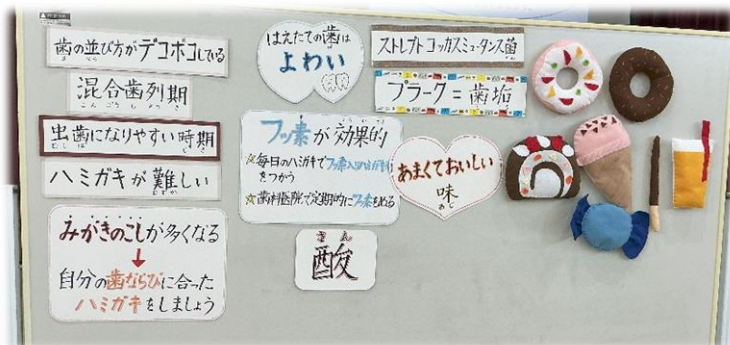 歯の並び方がデコボコしている
混合歯列期
こんごうしれつき
虫歯になりやすい時期
ハミガキが難しい
みがきのこしが多くなる
↓
自分の歯ならびに合った
ハミガキをしましょう
はえたての歯は
よわい
フッ素が効果的
☆毎日のハミガキでフッ素入りハミガキ剤
をつかう
☆歯科医院で定期的にフッ素をぬる
さん
酸
ストレプトコッカスミュータンス菌
プラーク=歯垢
あまくておいしい
味
あじ